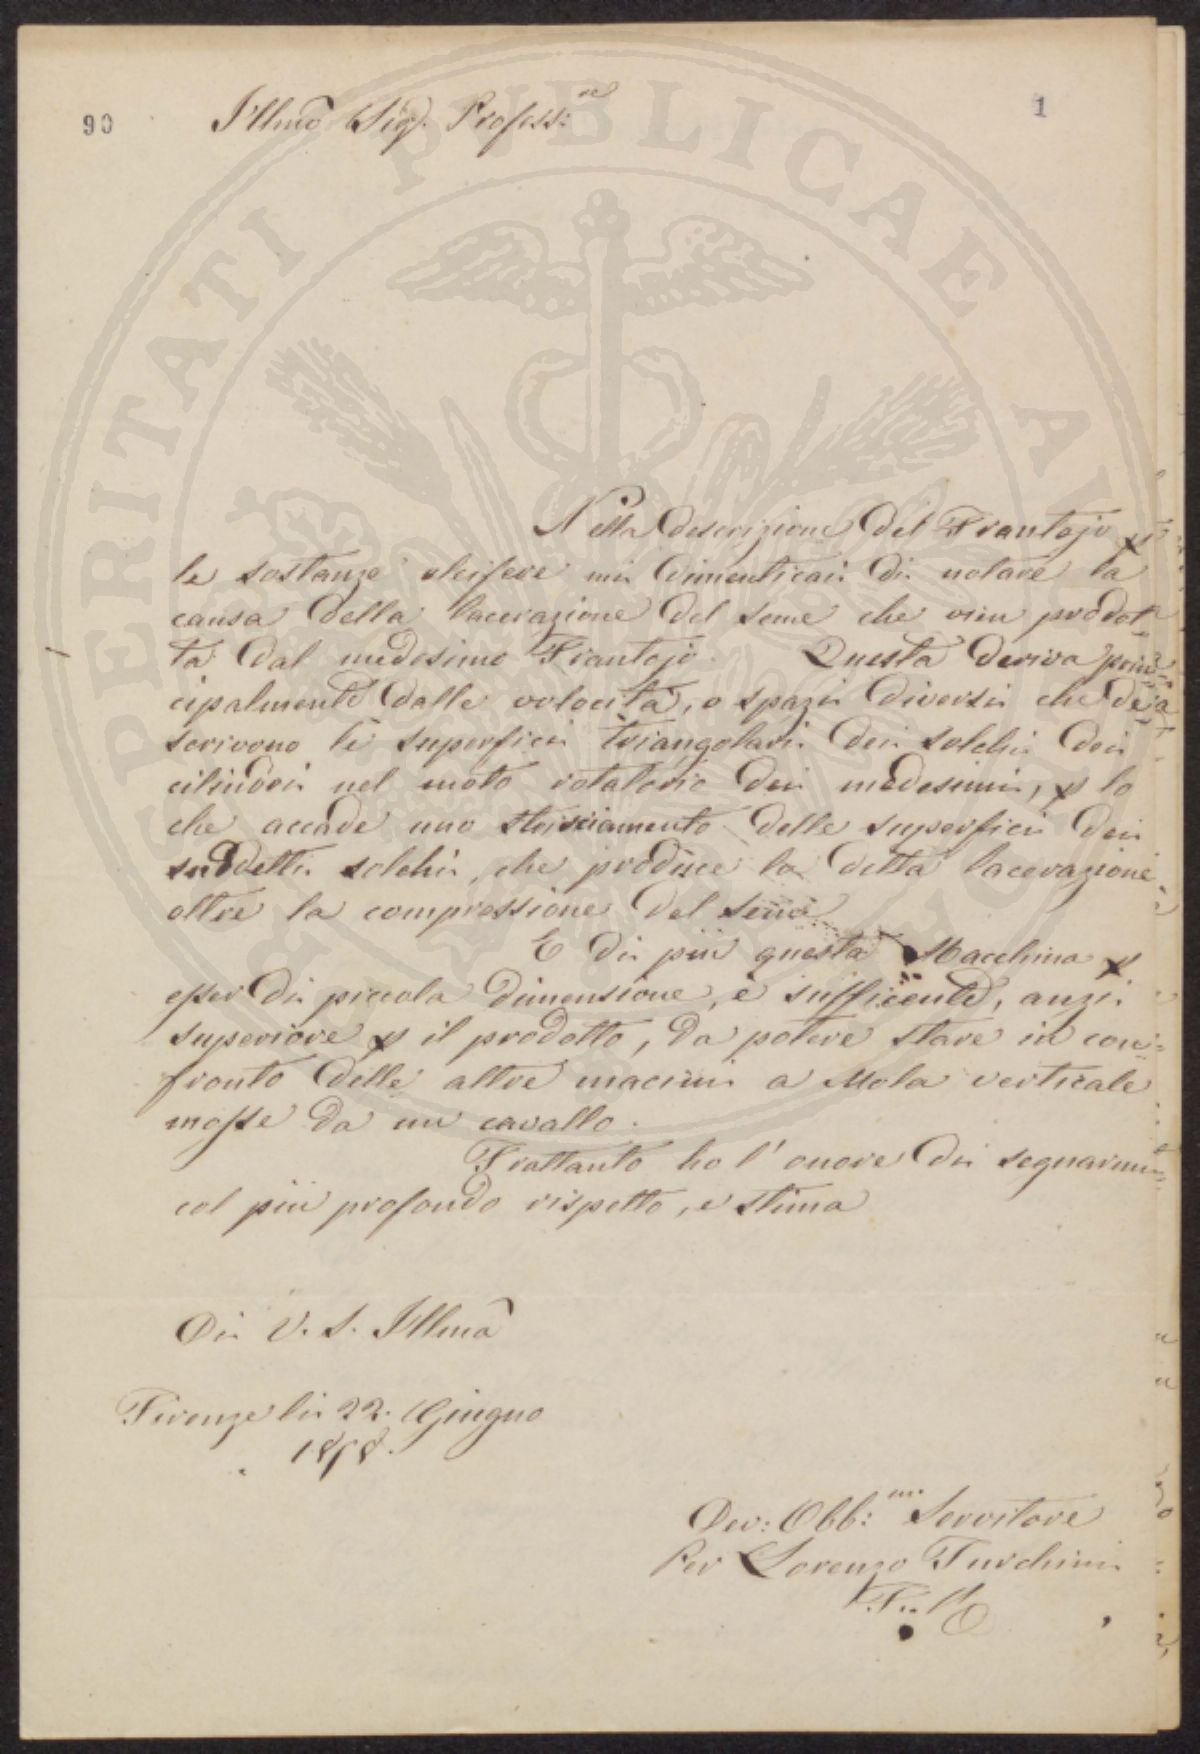 90
1
Illmo Sig. Profess:re
Nella descrizione del Frantojo p
le sostanze oleifere mi dimenticai di notare la
causa della lacerazione del seme che vien prodot=
ta dal medesimo Frantojo. Questa deriva prin=
cipalmente dalle velocità, o spazi diversi che de=
scrivono le superfici triangolari dei solchi dei
cilindri nel moto rotatorio dei medesimi, p lo
che accade uno strisciamento delle superfici dei
suddetti solchi, che produce la detta lacerazione
oltre la compressione del seme
E di più questa Macchina p
esser di piccola dimensione, è sufficente, anzi
superiore p il prodotto, da potere stare in con=
fronto delle altre macini a Mola verticale
mosse da un cavallo.
Frattanto ho l'onore di segnarmi
col più profondo rispetto, e stima
Di V. S. Illma
Firenze li 22. Giugno
1858.
Dev: Obb:mo Servitore
Per Lorenzo Turchini
PERITATI PUBLICAE